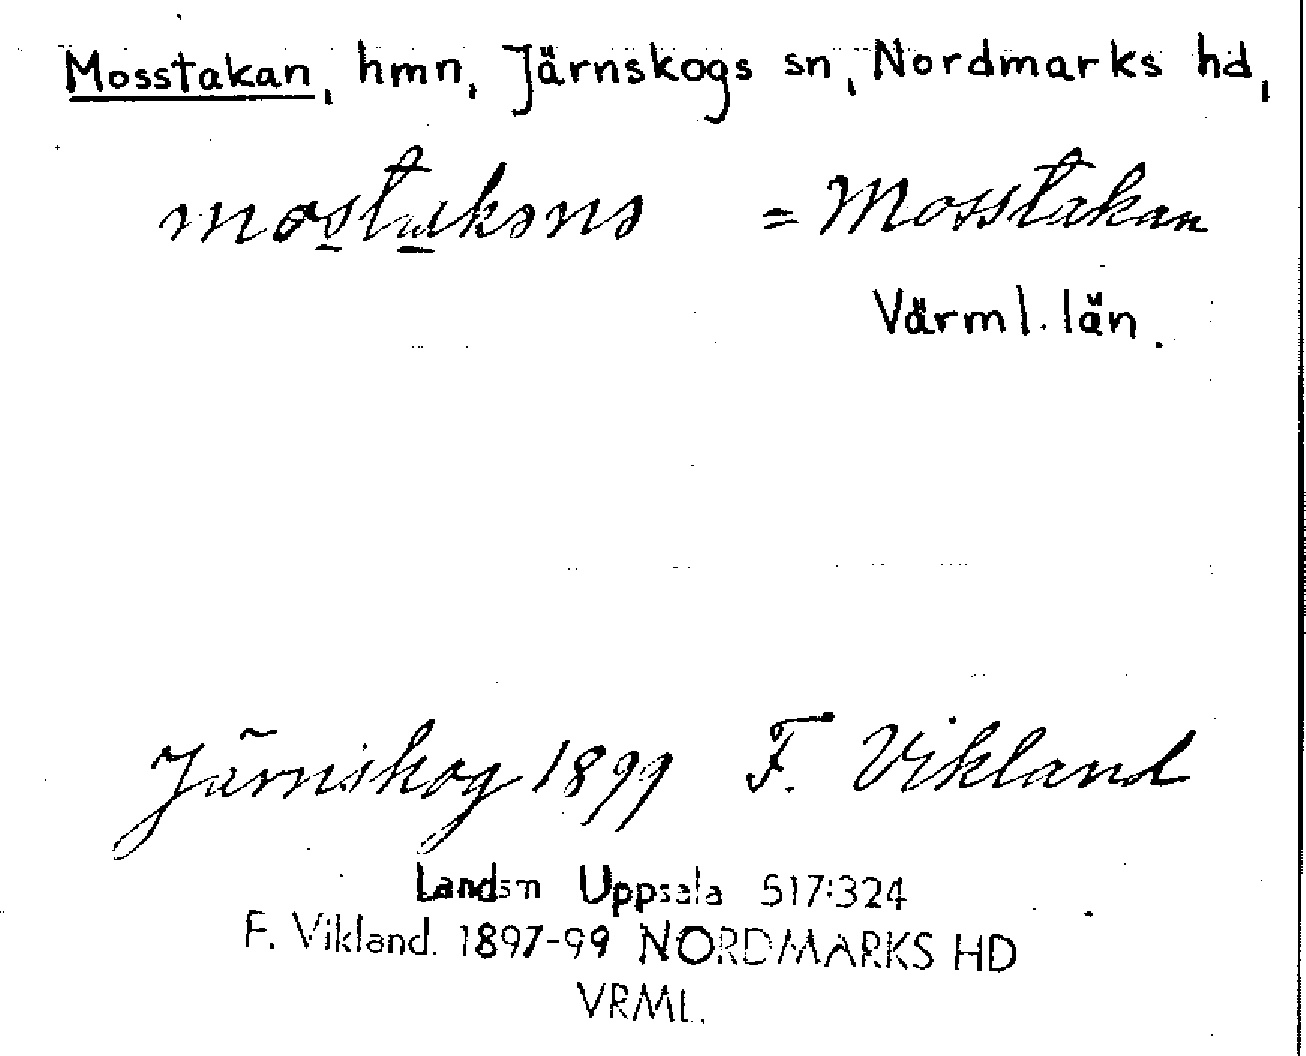 Mosstakan, hmn, Järnskogs sn, Nordmarks hd,
= Mosstakan
Värml. län.
Järnskog 1899 F. Vikland
Landsm Uppsala 517:324
F. Vikland. 1897-99 NORDMARKS HD
VRML.